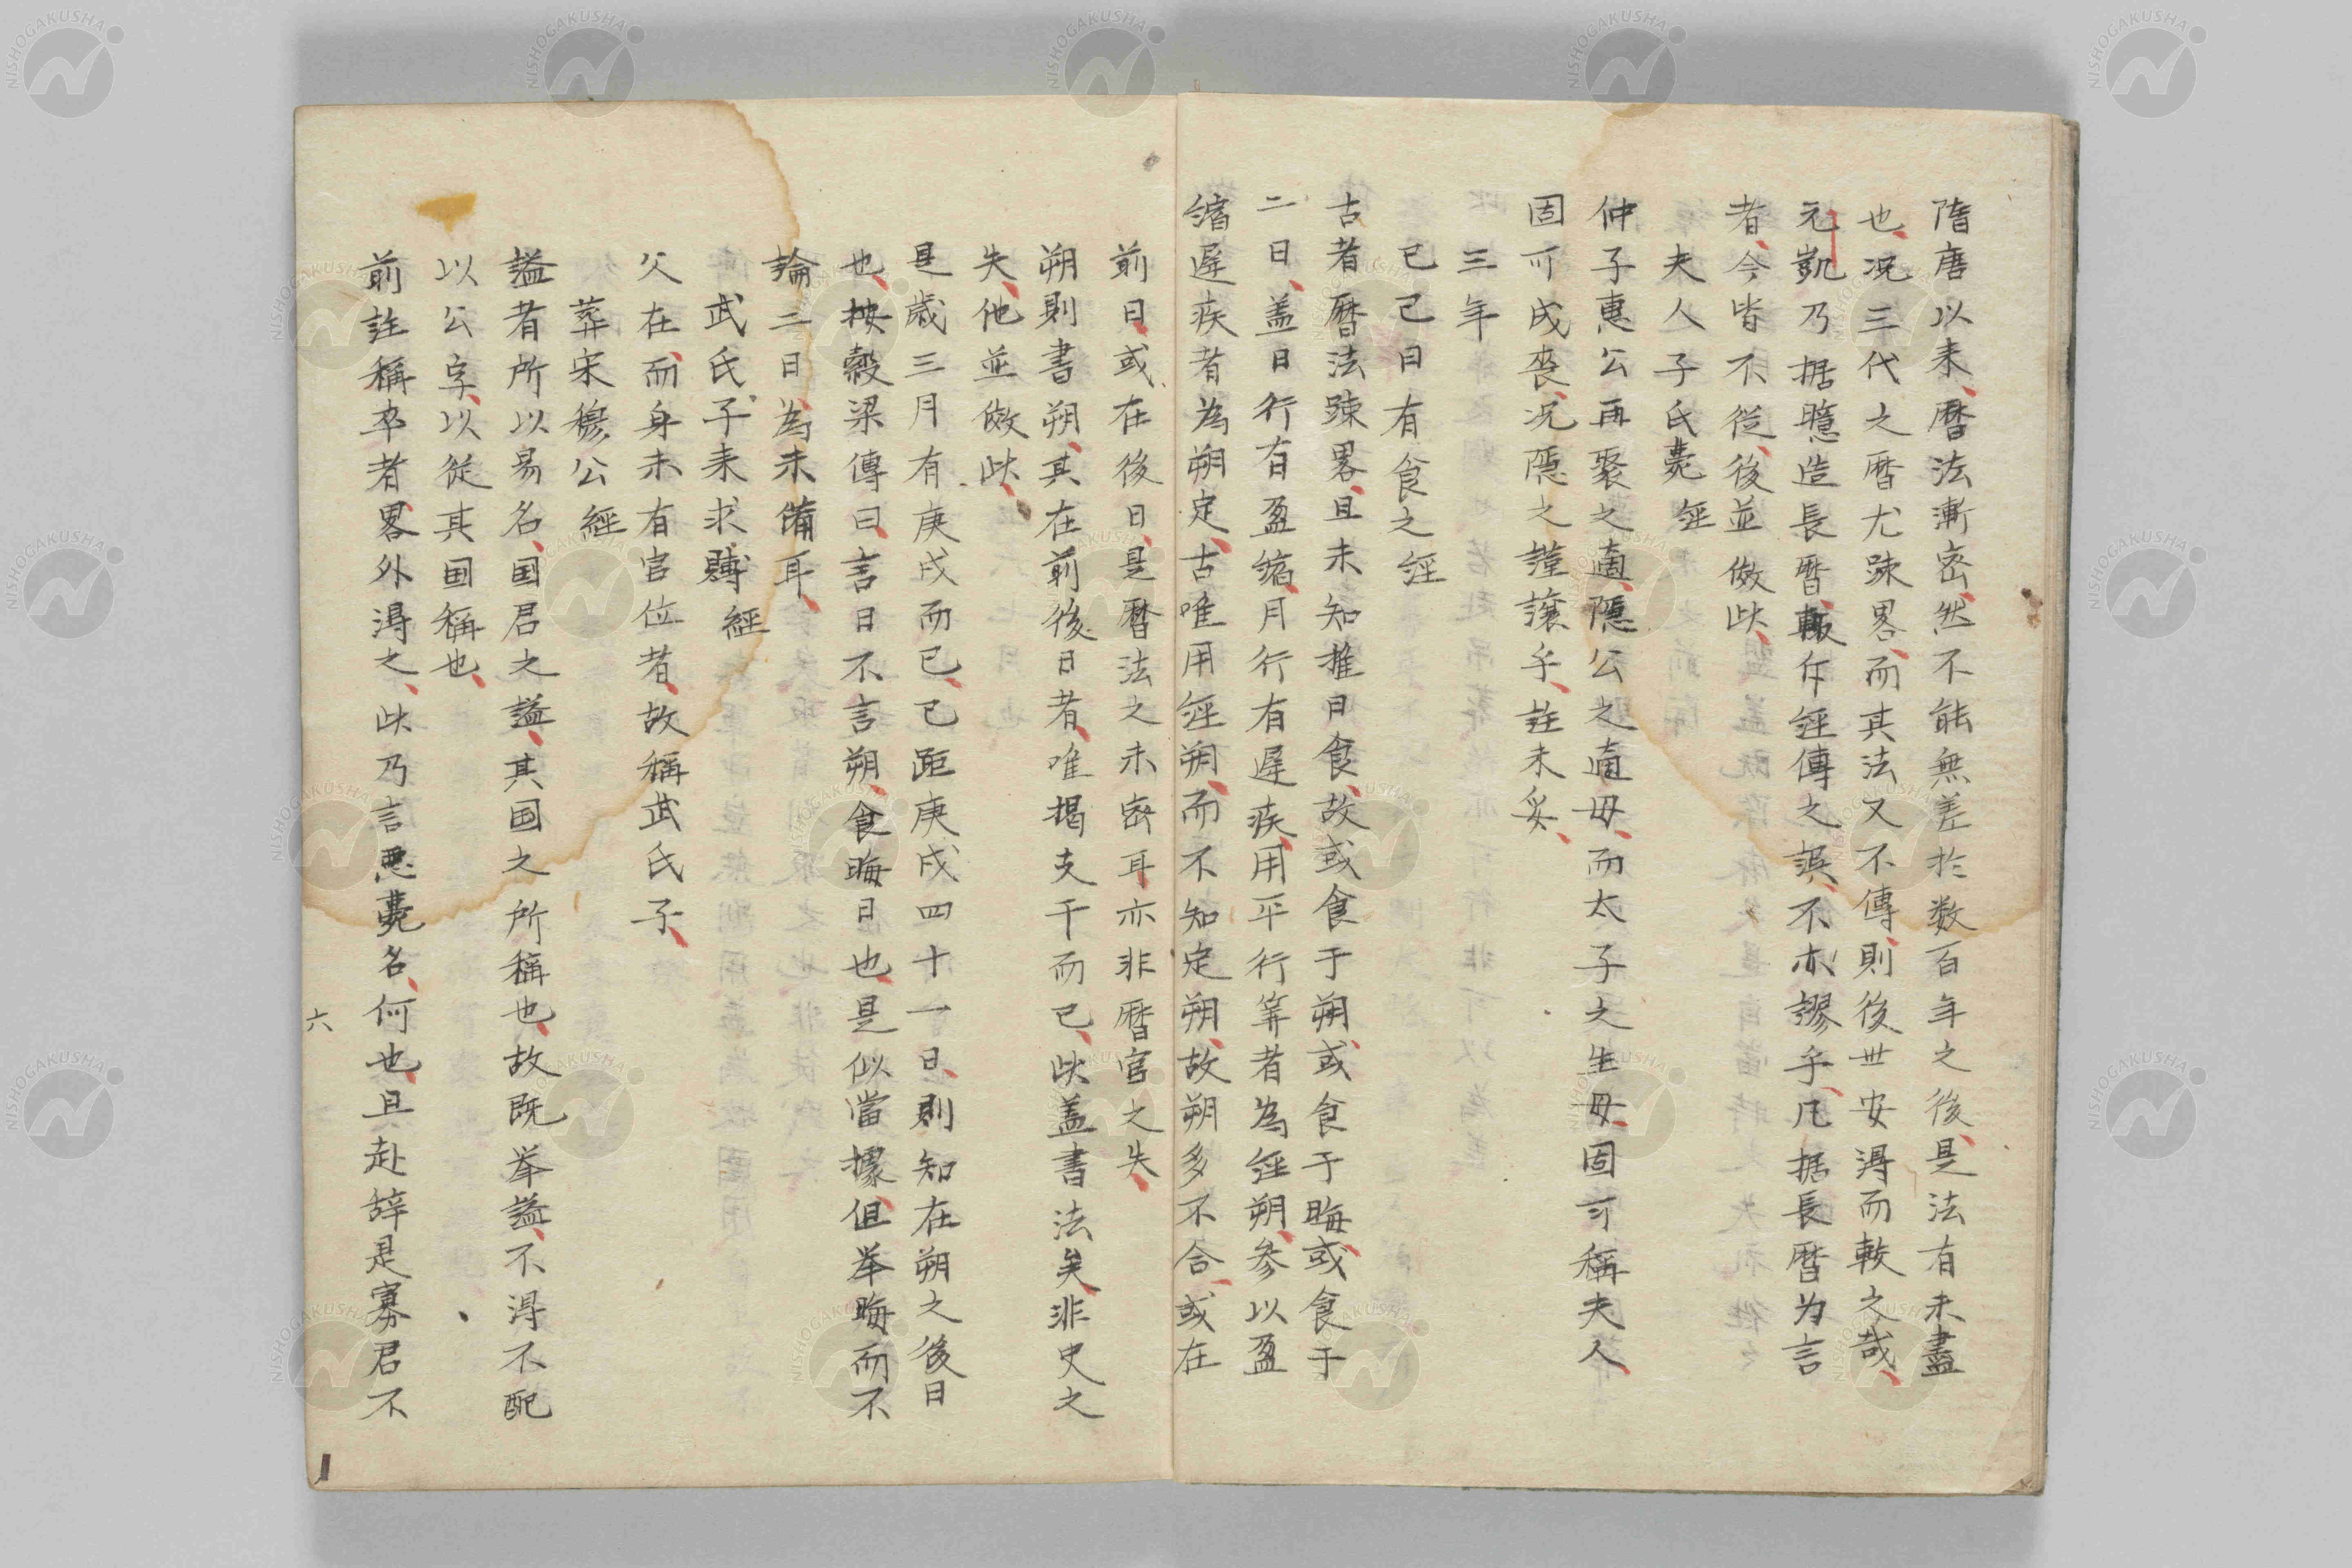 隋唐以来、暦法漸密、然不能無差於数百年之後、是法有未盡
也、况三代之暦尤踈畧、而其法又不傳、則後世安淂而較之哉、
元凱乃据臆造長暦、輙斥経傳之誤、不亦謬乎、凡据長暦为言
者、今皆不從、後並傚此、
夫人子氏薨 経
仲子惠公再娶之適、隠公之適母、而太子之生母、固可稱夫人、
固可成喪、况隠之謹讓乎、註未妥、
三年
己巳日有食之 経
古者暦法踈畧、且未知推日食、故或食于朔、或食于晦、或食于
二日、盖日行有盈縮、月行有遅疾、用平行筭者為経朔、参以盈
縮遅疾者為朔定、古唯用経朔、而不知定朔、故朔多不合、或在
前日、或在後日、是暦法之未密耳、亦非暦官之失、
朔則書朔、其在前後日者、唯揭支干而已、此盖書法矣、非史之
失、他並傚此、
是歳三月有庚戌而已、已距庚戌四十一日、則知在朔之後日
也、按穀梁傳曰、言日不言朔、食晦日也、是似當據、但举晦而不
論二日、為未備耳、
武氏子来求賻 経
父在、而身未有官位者、故稱武氏子、
葬宋穆公 経
謚者所以易名、国君之謚、其国之所稱也、故既举謚、不淂不配
以公字、以從其国稱也、
前註稱卒者畧外淂之、此乃言悪薨名、何也、且赴辞是寡君不
六
NISHOGAKUSHA